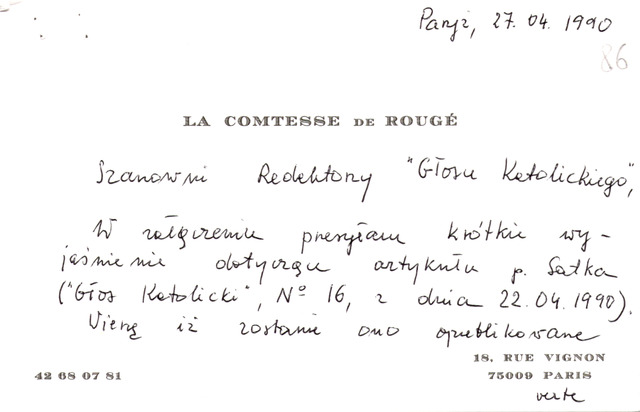 Paryż, 27. 04. 1990
86
LA COMTESSE DE ROUGÉ
Szanowni Redaktorzy "Głosu Katolickiego",
W załączeniu przesyłam krótkie wy-
jaśnienie dotyczące artykułu p. Satka
("Głos Katolicki", Nº 16, z dnia 22.04.1990).
Wierzę iż zostanie ono opublikowane
42 68 07 81
18, RUE VIGNON
75009 PARIS
verte